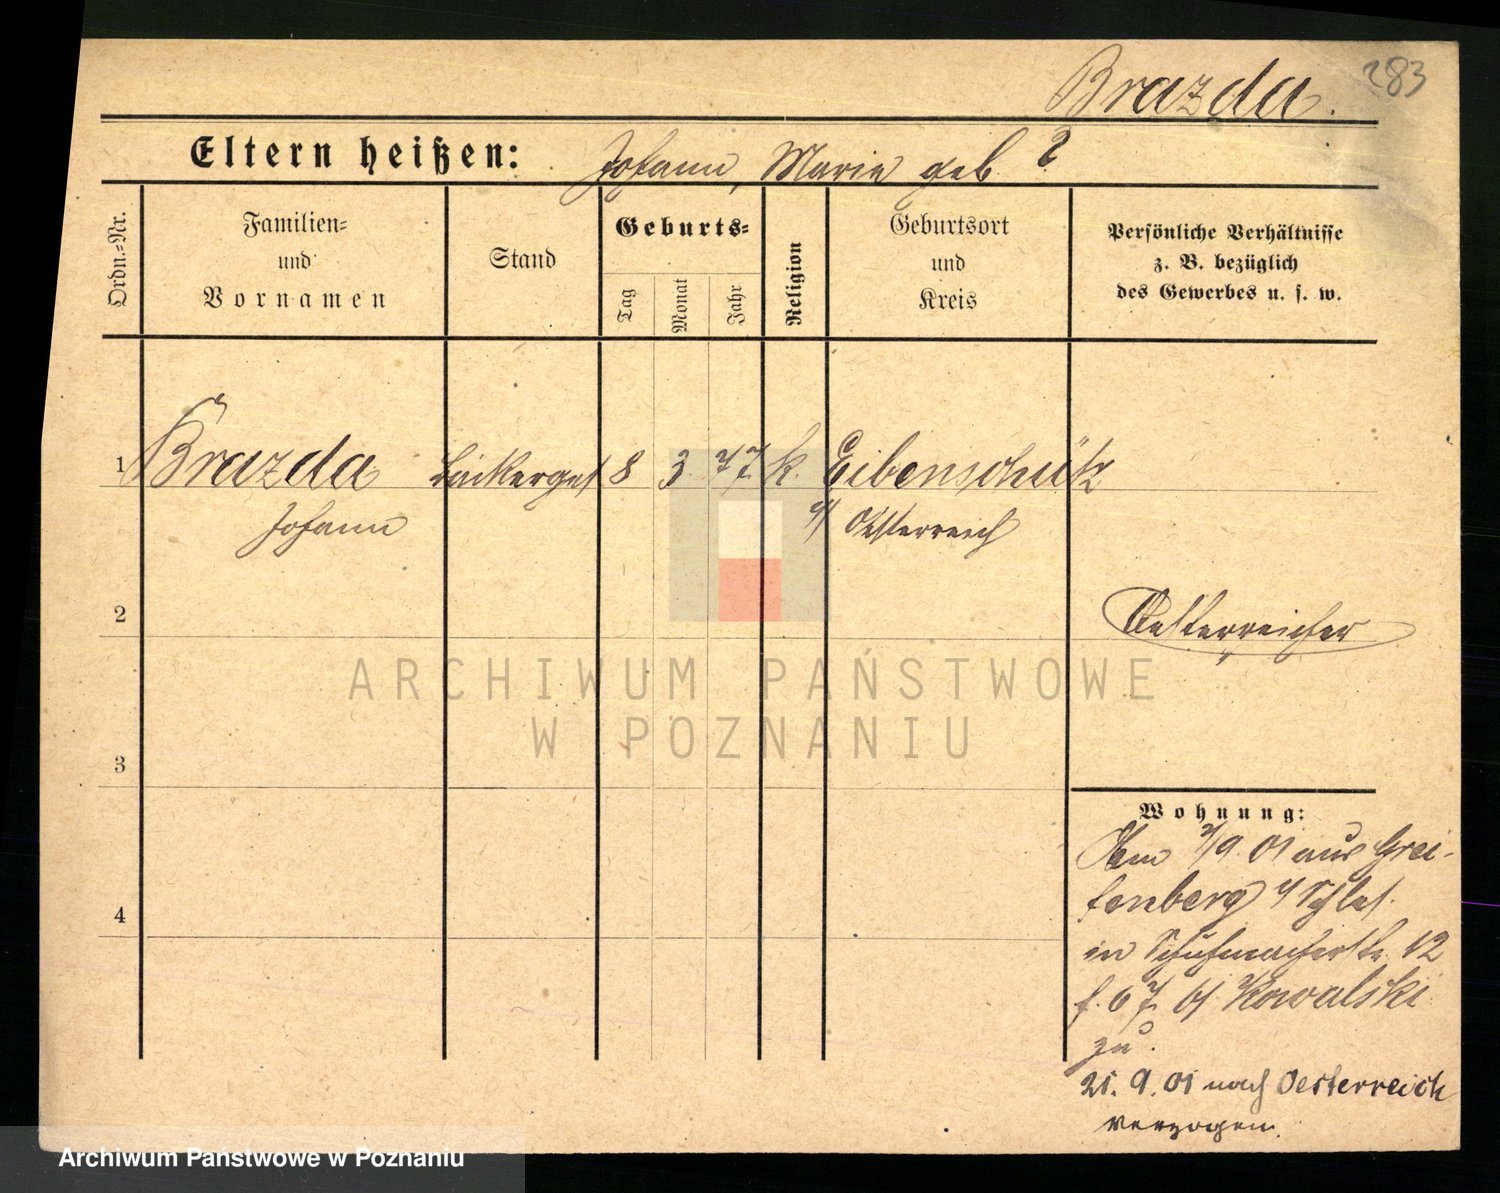 283
Brazda.
Eltern heißen: Johann, Marie geb ?
Ordn.=Nr.
Familien=
und
Vornamen
Stand
Geburts=
Tag
Monat
Jahr
Religion
Geburtsort
und
Kreis
Persönliche Verhältnisse
z. B. bezüglich
des Gewerbes u. s. w.
1 Brazda Bäckerges 8 3. 77. k. Eibenschütz
Johann i/ Oesterreich
2
Oesterreicher
3
4
Wohnung:
Am 7/9 01 aus Grei-
fenberg i/ Schles.
in Schuhmacherstr. 12
67 Kowalski
zu.
21. 9. 01 nach Oesterreich
verzogen.
ARCHIWUM PAŃSTWOWE
W POZNANIU
Archiwum Państwowe w Poznaniu